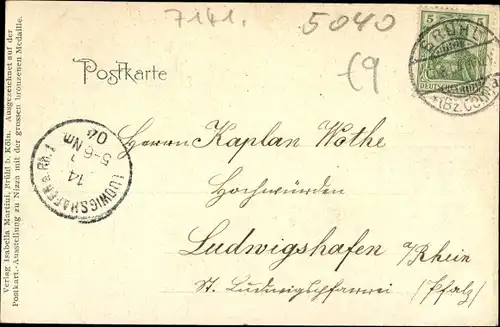 7141.
5040
£9
Postkarte
5
5
DEUTSCHES REICH
BRÜHL
*(Bz. CÖLN)a
LUDWIGSHAFEN a. Rh. 1
14
5-6Nm.
04
Herrn Kaplan Wothe
Hochwürden
Ludwigshafen a/Rhein
St. Ludwigspfarrei (Pfalz)
Verlag Isabella Martini, Brühl b. Köln. Ausgezeichnet auf der
Postkart.-Ausstellung zu Nizza mit der grossen bronzenen Medaille.